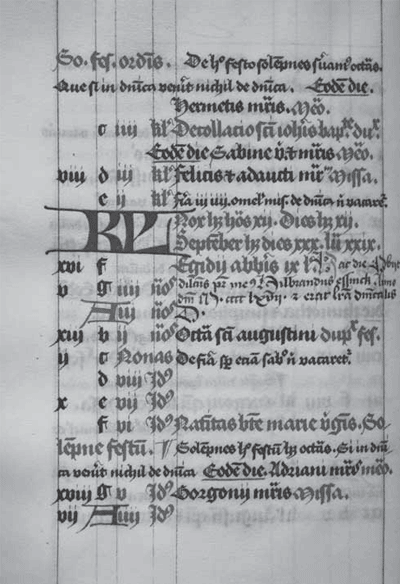 So. fes. ordis. De hº festo solēpnes suamº octās.
Que si in dnīca venīt nichil de dnīca. Eodē die.
Hermetis mris. Meō.
c iiii kl Decollacio scī iohis bapx̄ dux.
Eodē die Sabine v̄. t mris Meō.
viii d iii kl Felicis t adaucti mr Missa.
e ii kl fīa iii iiii. omel mis. de dnīca n̄ vacaret.
KL Nox hȝ hōs xii. Dies hȝ xii.
Septēber hȝ dies xxx. lū xxix.
xvi f Egidii abbis ix l
v g iiii noš
A iii noš
D.
xiii b ii noš Octā scī augustini dupx fes.
ii c Nonas De fīa sp eciā sabº n̄ vacaretx.
d viii Idꝰ
x e vii Idꝰ
f vi Idꝰ Natītas bte marie vgīs. So-
lēpne festū. Solēpnes hº festū hȝ octās. Si in dnī-
ca venīt nichil de dnīca Eodē die. Adriani mris meō.
xviii g v Idꝰ Gorgonii mris Missa.
vii A iiii Idꝰ